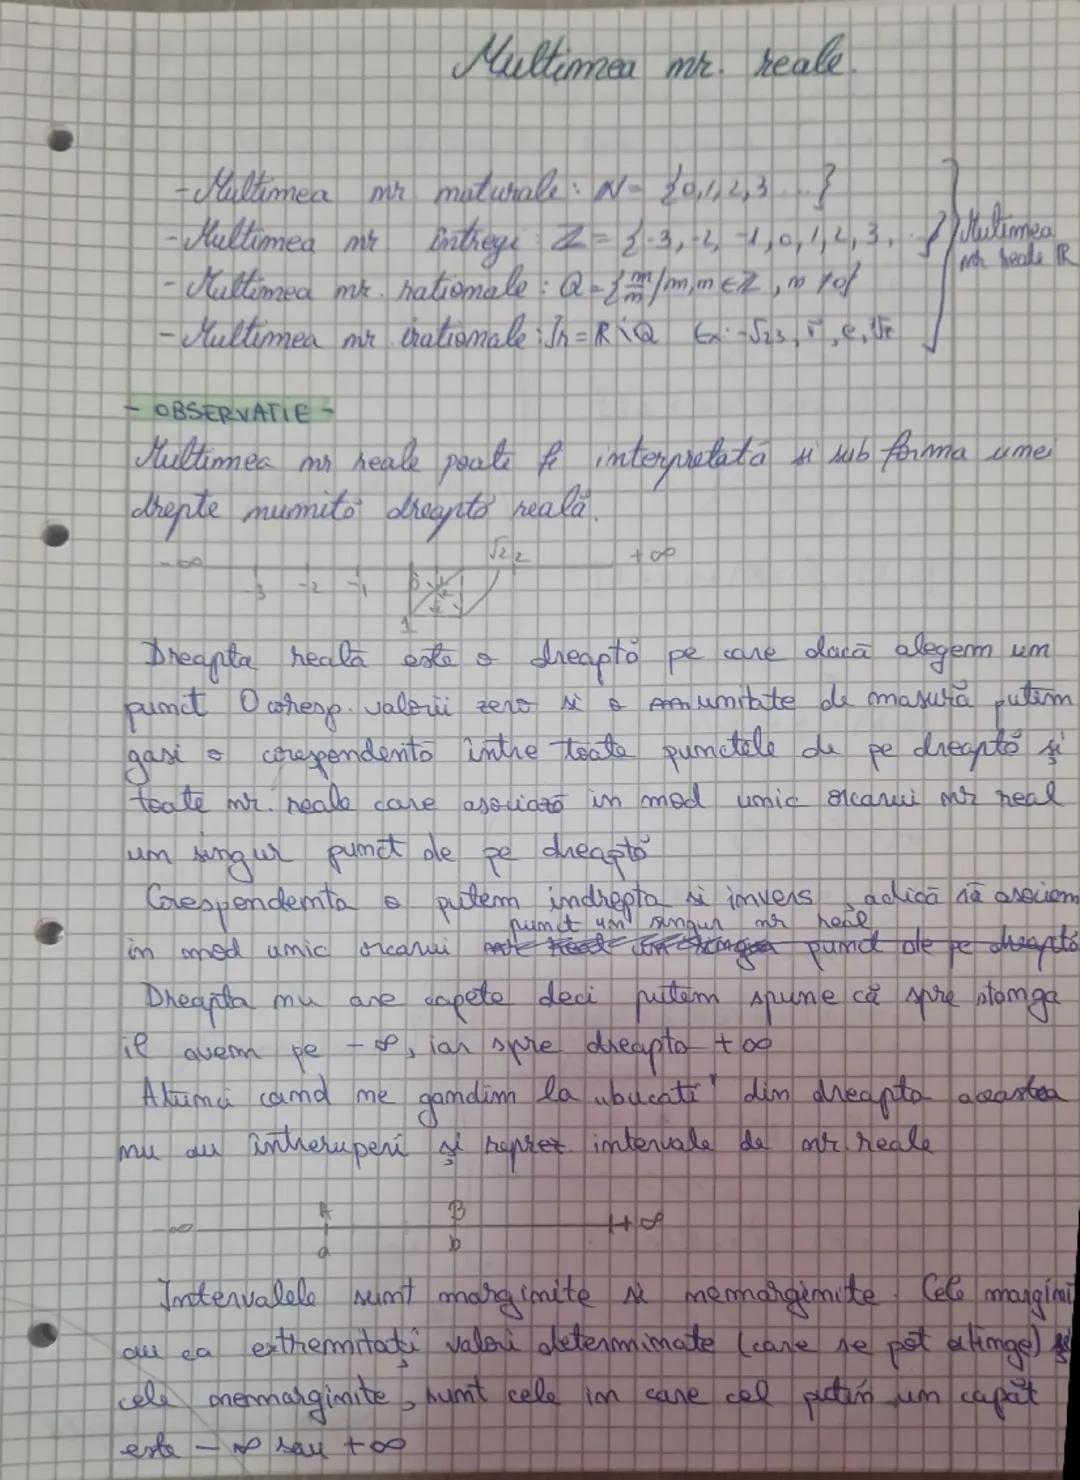 Multimea nr. reale.
- Multimea nr naturale: N = {0,1,2,3 ...}
- Multimea nr întregi Z = {-3,-2,-1,0,1,2,3, ..}
Multimea
nr reale R
- Multimea nr. rationale: Q = {m/n / m,n ∈ Z, n ≠ 0}
- Multimea nr irationale: Ir = R \ Q Ex: -√23, π, e,
- OBSERVATIE -
Multimea nr reale poate fi interpretată si sub forma unei
drepte numită dreaptă reală.
-∞ -3 -2 -1 0 1 √2 2 +∞
Dreapta reală este o dreaptă pe care dacă alegem un
punct O coresp. valorii zero si o unitate de masură putem
gasi o corespondentă între toate punctele de pe dreaptă și
toate nr. reale care asociază in mod unic oricarui nr real
um singur punct de pe dreaptă
Corespondenta o putem indrepta si invers, adică să asociem
punct un singur nr real
in mod unic oricarui punct de pe dreaptă
Dreapta nu are capete deci putem spune că spre stanga
il avem pe -∞, iar spre dreapta +∞
Atunci cand ne gandim la "bucati" din dreapta aceastea
nu au întreruperi și reprez. intervale de nr. reale
-∞ A B +∞
a b
Intervalele sunt marginite si nemarginite. Cele margini
au ca extremitați valori determinate (care se pot atinge) și
cele nemarginite, sunt cele in care cel putin un capăt
este -∞ sau +∞